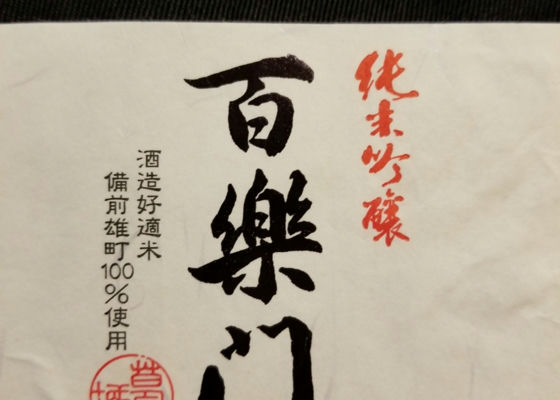 純米吟醸
百樂门
酒造好適米
備前雄町100%使用